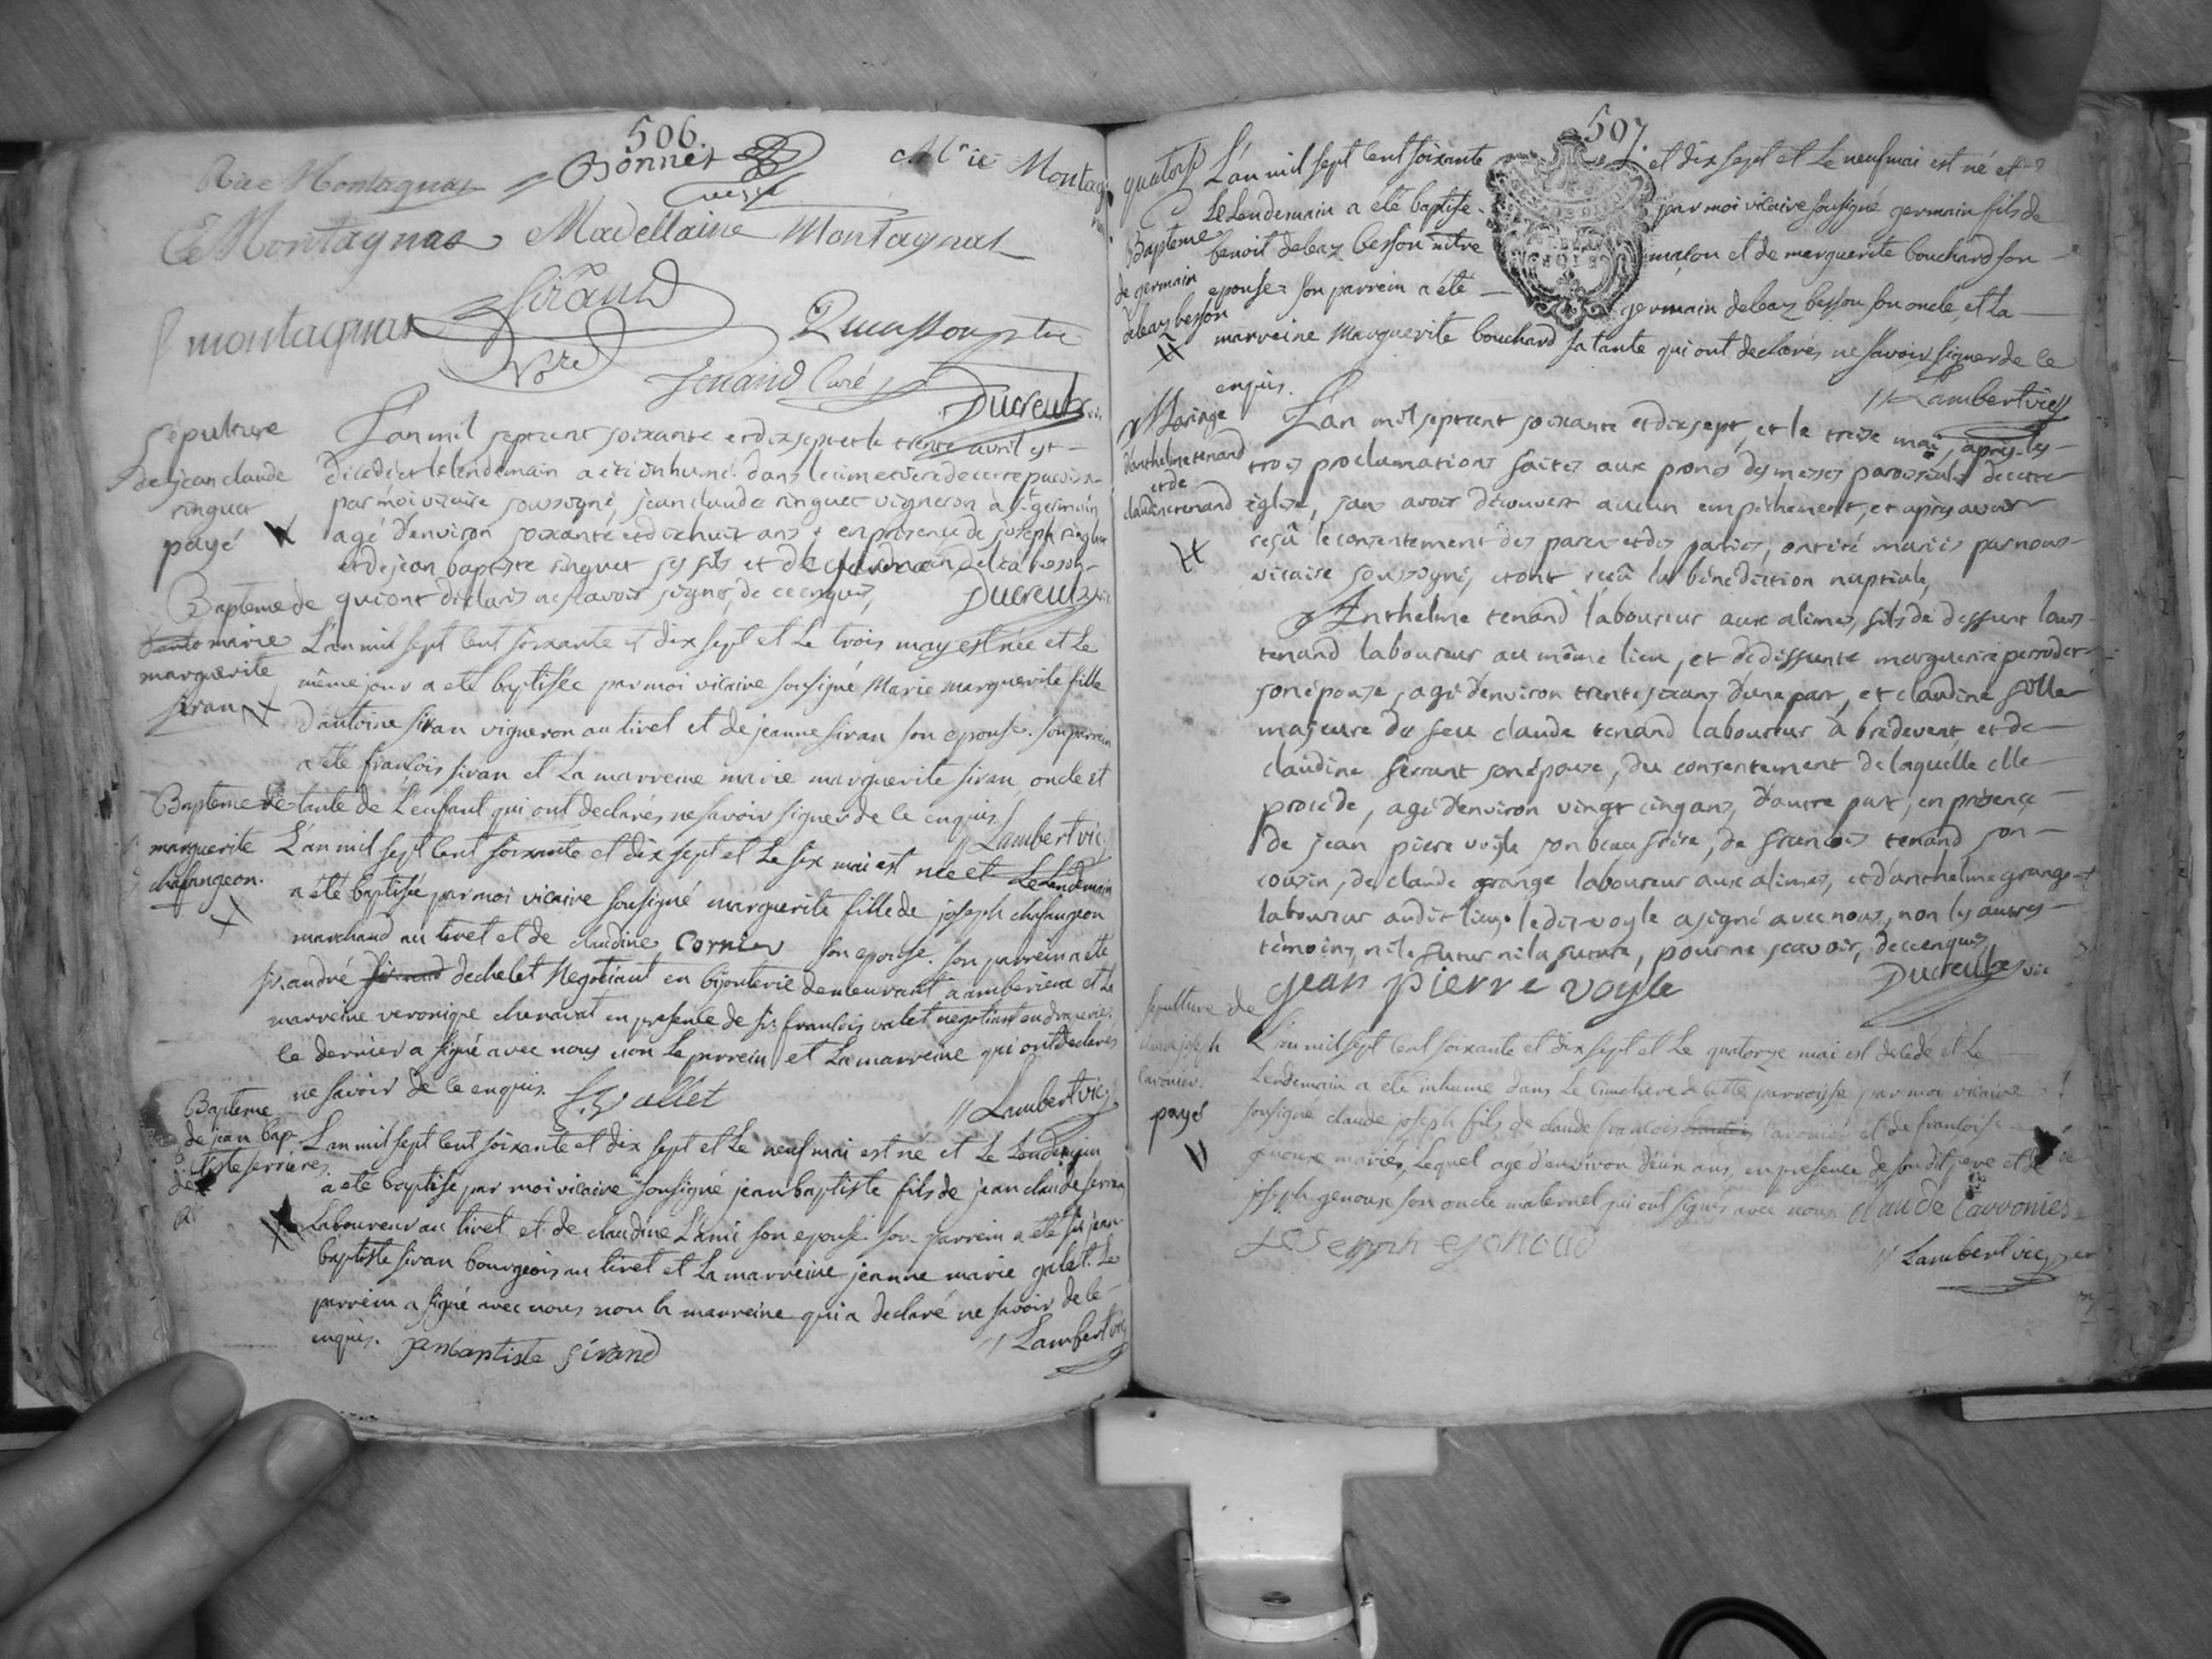 506.
Bonnet
Montagnat
Montagnat Madellaine Montagnat
montagnat Sirand
Nore
Curé
Ducreulx
Sépulture
de jean claude
ringuet
payé
L'an mil sept cent soixante et dix sept et le trente avril est
décédé et le lendemain a été inhumé dans le cimetière de cette paroisse
par moi vicaire soussigné, jean claude ringuet vigneron à st germain
agé d'environ soixante et dix huit ans, en présence de joseph ringuet
et de jean baptiste ringuet ses fils et de
qui ont déclarés ne scavoir signer, de ce enquis, Ducreulx vic
Bapteme de
marie
marguerite
siran
L'an mil sept cent soixante et dix sept et Le trois may est née et Le
même jour a eté baptisée par moi vicaire sousigné Marie marguerite fille
d'antoine siran vigneron au tiret et de jeanne siran son epouse. son parrein
a eté françois siran et La marreine marie marguerite siran oncle et
tante de L'enfant qui ont declarés ne savoir signer de ce enquis.
// Lambert vic
Bapteme de
marguerite
chafangeon.
L'an mil sept cent soixante et dix sept et Le six mai est née et Le Lendemain
a été baptisée par moi vicaire sousigné marguerite fille de joseph chafangeon
marchand au tiret et de claudine Cornier son epouse. son parrein a eté
sr. andré dechelet Negotiant en bijouterie demeurant a amberieux et La
marreine veronique chenavat en presence de sr. françois valet negotiant en draperie.
ce dernier a signé avec nous non Le parrein et La marreine qui ont declarés
ne savoir de ce enquis. f. vallet
// Lambert vic
Bapteme
de jean bap-
tiste serrieres
L'an mil sept cent soixante et dix sept et Le neuf mai est né et Le Lendemain
a eté baptisé par moi vicaire sousigné jean baptiste fils de jean claude
Laboureur au tiret et de claudine L'ami son epouse. son parrein a eté sr jean
baptiste siran bourgeois au tiret et La marreine jeanne marie galet. Le
parrein a signé avec nous non la marreine qui a declaré ne savoir de ce
enquis. jean baptiste Sirand
// Lambert vic
507.
quatorze
Bapteme
de germain
deleaz besson
L'an mil sept cent soixante et dix sept et Le neuf mai est né et
Le Lendemain a été baptisé par moi vicaire sousigné germain fils de
benoit deleaz besson maçon et de marguerite bouchard son
epouse. son parrein a été germain deleaz besson son oncle, et La
marreine Marguerite bouchard sa tante qui ont declarés ne savoir signer de ce
enquis.
// Lambert vic
Mariage
d'anthelme tenand
et de
claudine tenand
L'an mil sept cent soixante et dix sept, et le treize mai, après les
trois proclamations faites aux prones des messes paroissiales de cette
église, sans avoir découvert aucun empêchement, et après avoir
reçû le consentement des parens et des parties, ont été mariés par nous
vicaire soussigné, et ont reçû la bénédiction nuptiale,
Anthelme tenand laboureur aux alimes, fils de deffunt
tenand laboureur au même lieu, et de deffunte marguerite
son épouse, agé d'environ trente six ans d'une part, et claudine fille
majeure de feu claude tenand laboureur à bredevent, et de
claudine ferrant son épouse, du consentement de laquelle elle
procède, agé d'environ vingt cinq ans, d'autre part, en présence
de jean piere voyle son beau frère, de françois tenand son
cousin, de claude grange laboureur aux alimes, et d'anthelme grange
laboureur audit lieu. ledit voyle a signé avec nous, non les autres
témoins, ni le futur ni la future, pour ne scavoir, de ce enquis,
jean pierre voyle Ducreulx vic
Sepulture de
claude joseph
payé
L'an mil sept cent soixante et dix sept et Le quatorze mai est decedé et Le
Lendemain a eté inhumé dans Le Cimetière de cette parroisse par moi vicaire
sousigné claude joseph fils de claude françois et de françoise
genoux mariés, Lequel agé d'environ deux ans, en presence de son dit pere et de
joseph genoux son oncle maternel qui ont signés avec nous
// Lambert vic